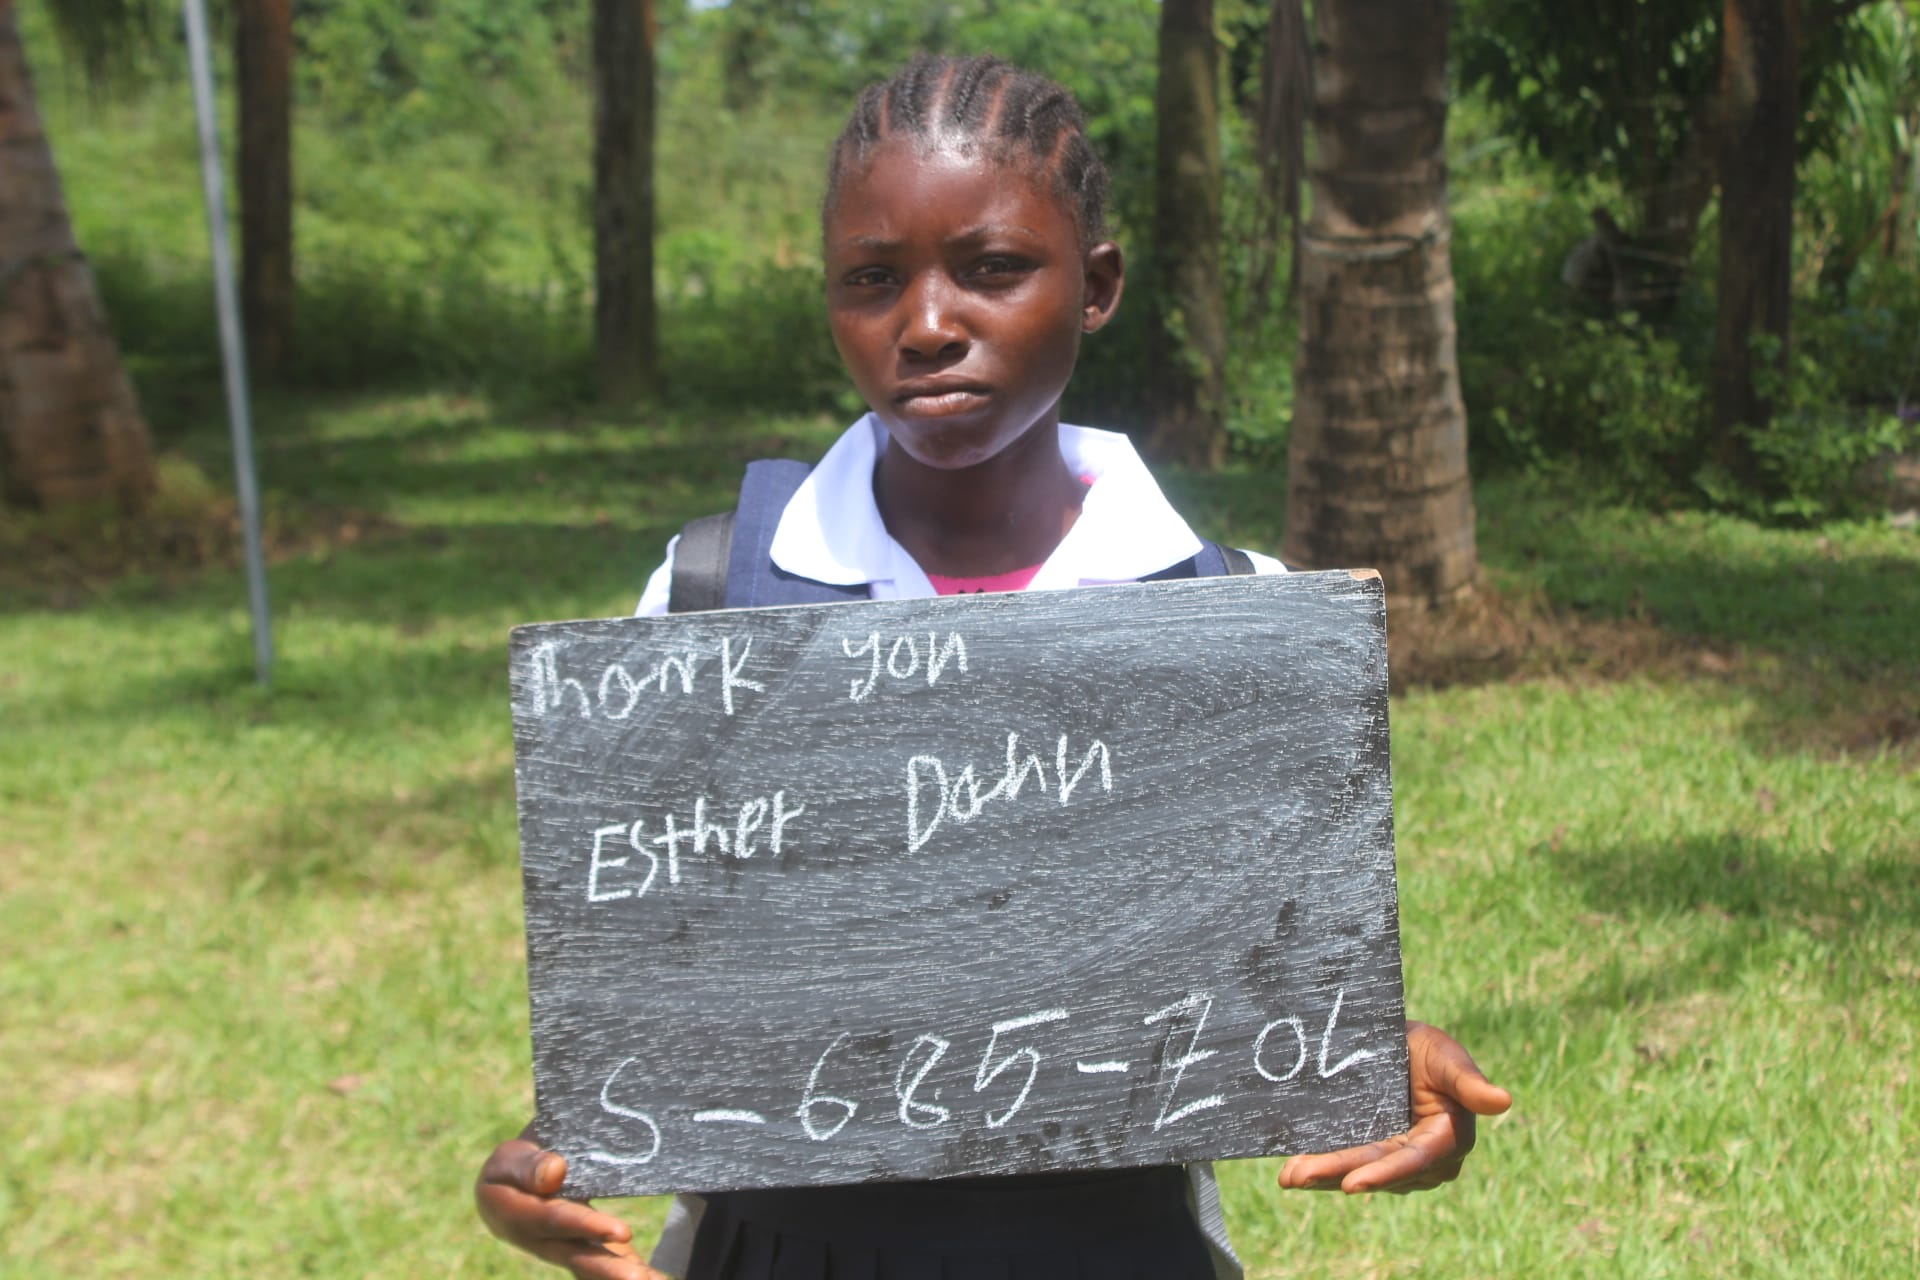 Thank you
Esther Dahn
S-685-ZOL